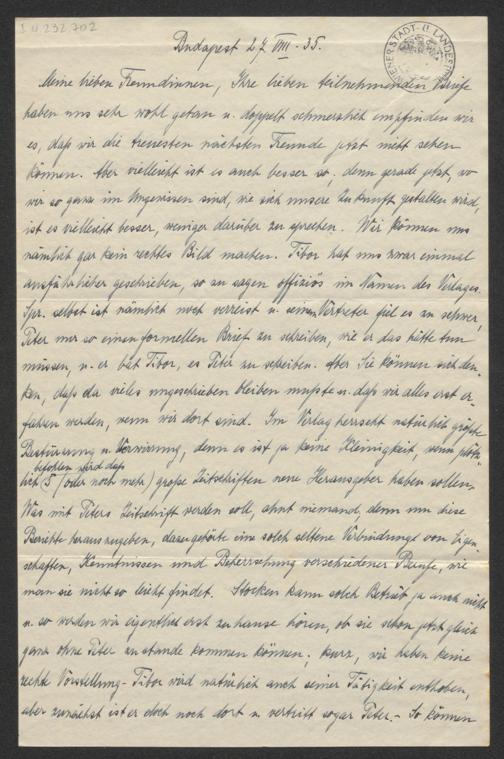 I.N. 232.702
WIENER STADT- U. LANDESBIBL
Budapest 27 VIII - 35.
Meine lieben Freundinnen, Ihre lieben teilnehmenden Briefe
haben uns sehr wohl getan u. doppelt schmerzlich empfinden wir
es, daß wir die treuesten nächsten Freunde jetzt nicht sehen
können. Aber vielleicht ist es auch besser so, denn gerade jetzt, wo
wir so ganz im Ungewissen sind, wie sich unsere Zukunft gestalten wird,
ist es vielleicht besser, weniger darüber zu sprechen. Wir können uns
nämlich gar kein rechtes Bild machen. Tibor hat uns zwar einmal
ausführlicher geschrieben, so zu sagen offiziös im Namen des Verlages.
Spr. selbst ist nämlich noch verreist u. seinem Vertreter fiel es zu schwer,
Peter nur so einen formellen Brief zu schreiben, wie er das hätte tun
müssen, u. er bat Tibor, es Peter zu schreiben. Aber Sie können sich den-
ken, daß da vieles ungeschrieben bleiben mußte u. daß wir alles erst er-
fahren werden, wenn wir dort sind. Im Verlag herrscht natürlich größte
Bestürzung u. Verwirrung, denn es ist ja keine Kleinigkeit, wenn plötz-
befohlen wird daß
lich 5 (oder noch mehr) große Zeitschriften neue Herausgeber haben sollen.
Was mit Peters Zeitschrift werden soll, ahnt niemand, denn um diese
Berichte herauszugeben, dazu gehörte eine solch seltene Verbindung von Eigen-
schaften, Kenntnissen und Beherrschung verschiedener Berufe, wie
man sie nicht so leicht findet. Stocken kann solch Betrieb ja auch nicht
u. so werden wir eigentlich erst zuhause hören, ob sie schon jetzt gleich
ganz ohne Peter zustande kommen können; kurz, wir haben keine
rechte Vorstellung - Tibor wird natürlich auch seiner Tätigkeit enthoben,
aber zunächst ist er doch noch dort u. vertritt sogar Peter. - So können